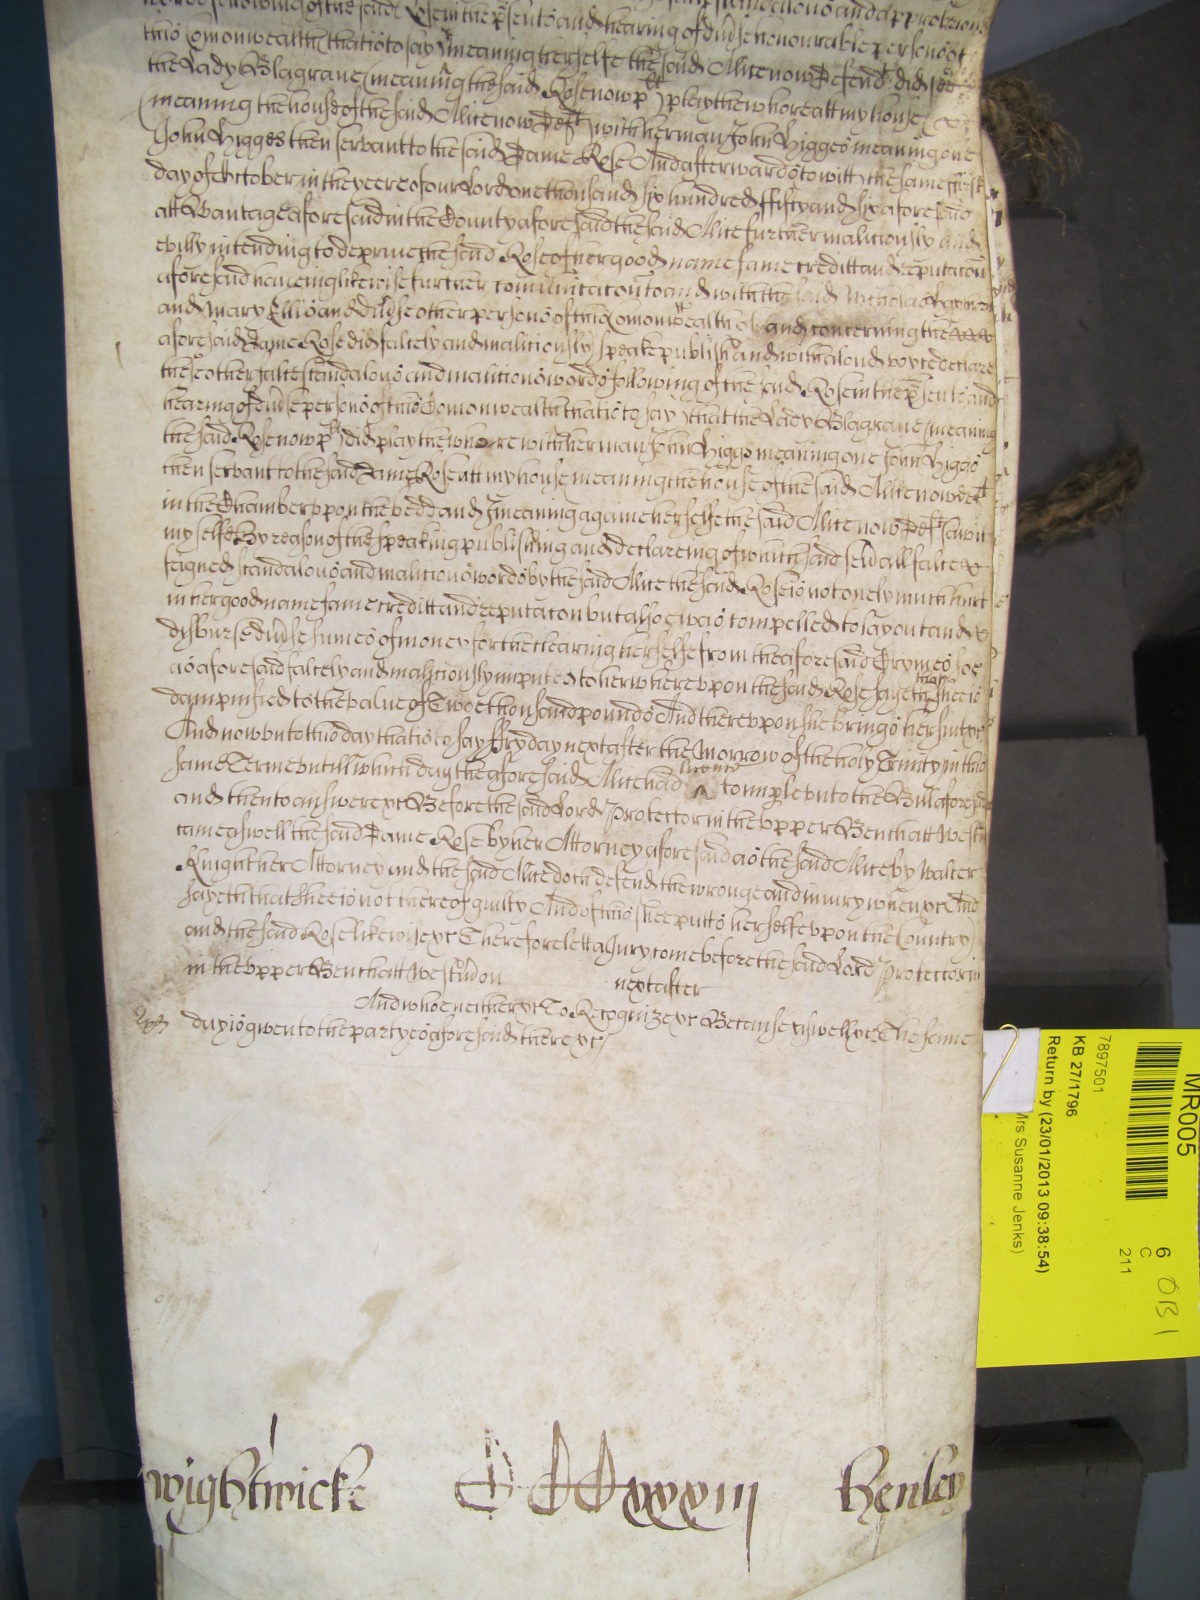 words following of the said Rose in the p'sence and hearing of div'se honourable persons of
this Comonwealth (that is to say) I meaning herselfe the said Alice now Defend^t did see
the Lady Blagrave (meaning the said Rose now p^lt) play the whore att my house
(meaning the house of the said Alice now Def^t) with her man John Higges meaning one
John Higges then servant to the said Dame Rose And afterwards to witt the same first
day of October in the yeere of our Lord one thousand six hundred fifty and six aforesaid
att Wantage aforesaid in the County aforesaid the said Alice further malitiously and
evilly intending to deprive the said Rose of her good name fame creditt and reputac͠on
aforesaid haveing likewise further comunicac͠on to and with the said Nicholas
and Mary Ellis and div'se other persons of this Comonwealth of and concerning the
aforesaid Dame Rose did falcely and malitiously speake publish and with a loud voyce declare
these other false scandalous and malitious words following of the said Rose in the p'sence and
hearing of div'se persons of this Comonwealth that is to say) that the Lady Blagrave (meaning
the said Rose now p^lt) did play the whore with her man John Higgs meaning one John Higgs
then servant to the said Dame Rose att my house meaning the house of the said Alice now def^t
in the Chamber vpon the bedd and I meaning againe herselfe the said Alice now Def^t saw it
my selfe By reason of the speaking publishing and declareing of which said sev'all false &
feigned scandalous and malitious words by the said Alice the said Rose is not onely much hurt
in her good name fame creditt and reputac͠on but alsoe was compelled to lay out and
disburse div'se sumes of money for the clearing herselfe from the aforesaid Crymes soe
as aforesaid falcely and malitiously imputed to her wherevpon the said Rose sayeth that shee is
dampnifyed to the value of Twoe thousand pounds And therevpon she brings her suit &c
And now vnto this day that is to say Fryday next after the Morrow of the holy Trinity in this
same Terme vntill which day the aforesaid Alice had licence to imparle vnto the Bill aforesaid
and then to answere &c Before the said Lord Protector in the vpper Bench att Westm͠
came aswell the said Dame Rose by her Attorney aforesaid as the said Alice by Walter
Knight her Attorney and the said Alice doth defend the wronge and iniury when &c And
sayeth that shee is not thereof guilty And of this shee putts herselfe vpon the Country
and the said Rose likewise &c Therefore lett a Jury come before the said Lord Protector in
in the vpper Bench att Westm͠ on next after
And who neither &c To Recognize &c Because aswell &c The same
day is given to the partyes aforesaid there &c
Wightwick
CCCxxxiii
Henley
MR005
7897501
KB 27/1796
Return by (23/01/2013 09:38:54)
Mrs Susanne Jenks)
6
C
211
OB1